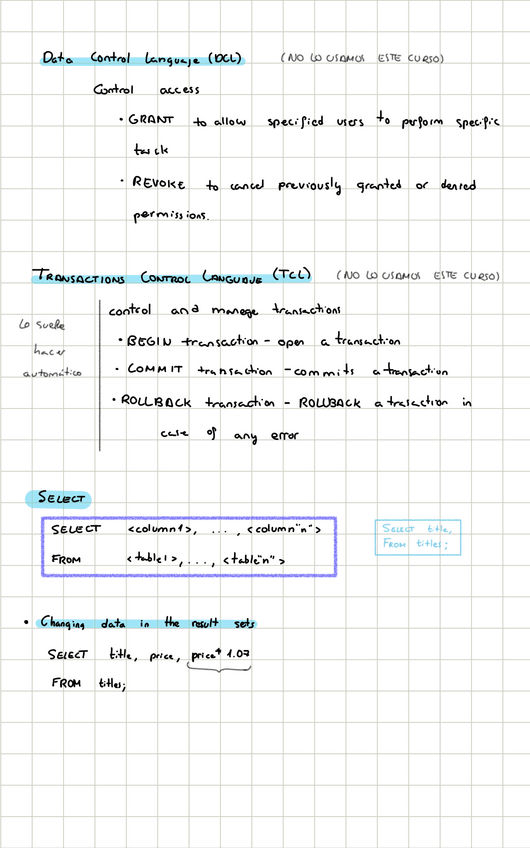 Data Control Language (DCL) (NO LO USAMOS ESTE CURSO)
Control access
• GRANT to allow specified users to perform specific
task
• REVOKE to cancel previously granted or denied
permissions.
TRANSACTIONS CONTROL LANGUAJE (TCL) (NO LO USAMOS ESTE CURSO)
Lo suele
hacer
automático
control and manage transactions
• BEGIN transaction - open a transaction
• COMMIT transaction - commits a transaction
• ROLLBACK transaction - ROLLBACK a trasaction in
case of any error
SELECT
SELECT <column1>, ... , <column"n">
FROM <table1>, ..., <table"n">
SELECT title,
FROM titles;
• Changing data in the result sets
SELECT title, price, price* 1.07
FROM titles;